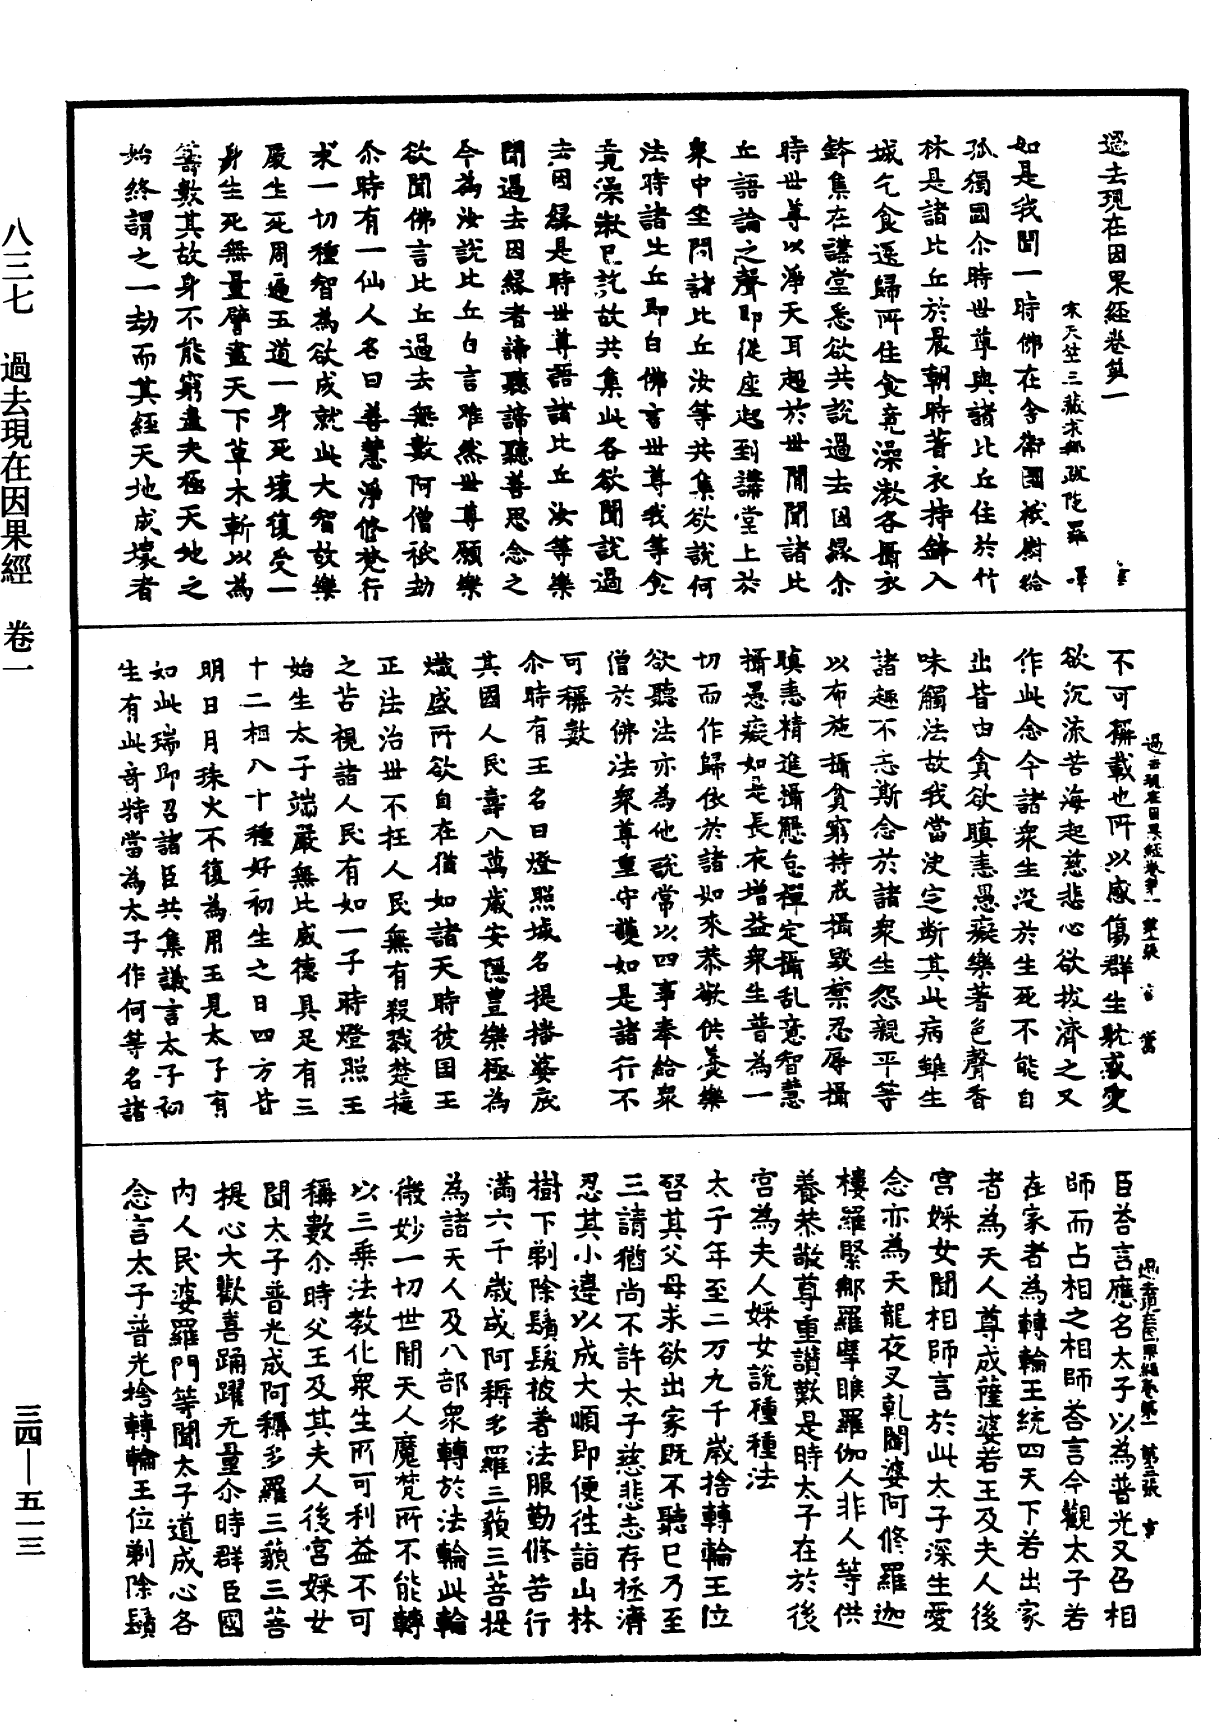 過去現在因果經卷第一
宋天竺三藏求那跋陀羅 譯
如是我聞一時佛在舍衛國祇樹給
孤獨園尒時世尊與諸比丘住於竹
林是諸比丘於晨朝時著衣持鉢入
城乞食還歸所住食竟澡漱各攝衣
鉢集在講堂悉欲共說過去因緣尒
時世尊以淨天耳超於世間聞諸比
丘語論之聲即從座起到講堂上於
衆中坐問諸比丘汝等共集欲說何
法時諸比丘即白佛言世尊我等食
竟澡漱已訖故共集此各欲聞說過
去因緣是時世尊語諸比丘汝等樂
聞過去因緣者諦聽諦聽善思念之
今為汝說比丘白言唯然世尊願樂
欲聞佛言比丘過去無數阿僧祇劫
尒時有一仙人名曰善慧淨修梵行
求一切種智為欲成就此大智故樂
處生死周遍五道一身死壞復受一
身生死無量譬盡天下草木斬以為
籌數其故身不能窮盡夫極天地之
始終謂之一劫而其經天地成壞者
不可稱載也所以感傷群生耽惑愛
欲沉流苦海起慈悲心欲拔濟之又
作此念今諸衆生没於生死不能自
出皆由貪欲瞋恚愚癡樂著色聲香
味觸法故我當决定斷其此病雖生
諸趣不忘斯念於諸衆生怨親平等
以布施攝貧窮持戒攝毀禁忍辱攝
瞋恚精進攝懈怠禪定攝乱意智慧
攝愚癡如是長夜增益衆生普為一
切而作歸依於諸如來恭敬供養樂
欲聽法亦為他說常以四事奉給衆
僧於佛法衆尊重守護如是諸行不
可稱數
尒時有王名曰燈照城名提播婆底
其國人民壽八萬歲安隱豐樂極為
熾盛所欲自在猶如諸天時彼国王
正法治世不枉人民無有殺戮楚撻
之苦視諸人民有如一子時燈照王
始生太子端嚴無比威德具足有三
十二相八十種好初生之日四方皆
明日月珠火不復為用王見太子有
如此瑞即召諸臣共集議言太子初
生有此奇特當為太子作何等名諸
過去現在因果經卷第一 第二張
臣荅言應名太子以為普光又召相
師而占相之相師荅言今觀太子若
在家者為轉輪王統四天下若出家
者為天人尊成薩婆若王及夫人後
宮婇女聞相師言於此太子深生愛
念亦為天龍夜叉乹闥婆阿修羅迦
樓羅緊那羅摩睺羅伽人非人等供
養恭敬尊重讃歎是時太子在於後
宮為夫人婇女說種種法
太子年至二万九千歲捨轉輪王位
啓其父母求欲出家既不聽已乃至
三請猶尚不許太子慈悲志存拯濟
忍其小違以成大順即便往詣山林
樹下剃除鬚髮披著法服勤修苦行
滿六千歲成阿耨多羅三藐三菩提
為諸天人及八部衆轉於法輪此輪
微妙一切世間天人魔梵所不能轉
以三乘法教化衆生所可利益不可
稱數尒時父王及其夫人後宮婇女
聞太子普光成阿耨多羅三藐三菩
提心大歡喜踊躍无量尒時群臣國
內人民婆羅門等聞太子道成心各
念言太子普光捨轉輪王位剃除鬚
過去現在因果經卷第一 第三張
八三七 過去現在因果經 卷一
三四—五一三